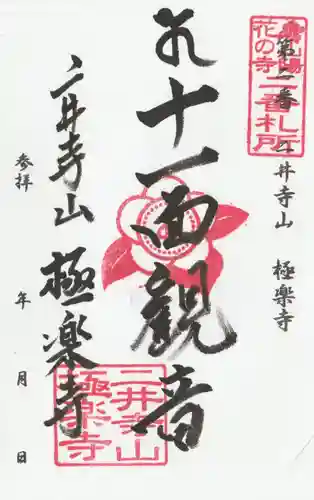 山陽
花の寺
二番札所
第二番 二井寺山 極楽寺
十一面観音
二井寺山 極楽寺
参拝 年 月 日
二井寺山
極楽寺